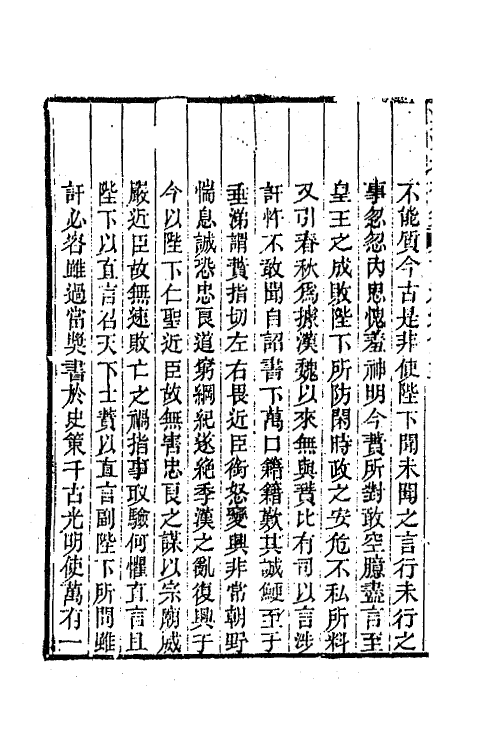 不能質今古是非使陛下聞未聞之言行未行之
事忽忽內思愧羞神明今蕡所對敢空臆盡言至
皇王之成敗陛下所防閑時政之安危不私所料
又引春秋爲據漢魏以來無與蕡比有司以言涉
訐忤不敢聞自詔書下萬口籍籍歎其誠鯁至于
垂涕謂蕡指切左右畏近臣銜怒變興非常朝野
惴息誠恐忠良道窮綱紀遂絶季漢之亂復興于
今以陛下仁聖近臣故無害忠良之謀以宗廟威
嚴近臣故無速敗亡之禍指事取驗何懼直言且
陛下以直言召天下士蕡以直言副陛下所問雖
訐必容雖過當奬書於史策千古光明使萬有一